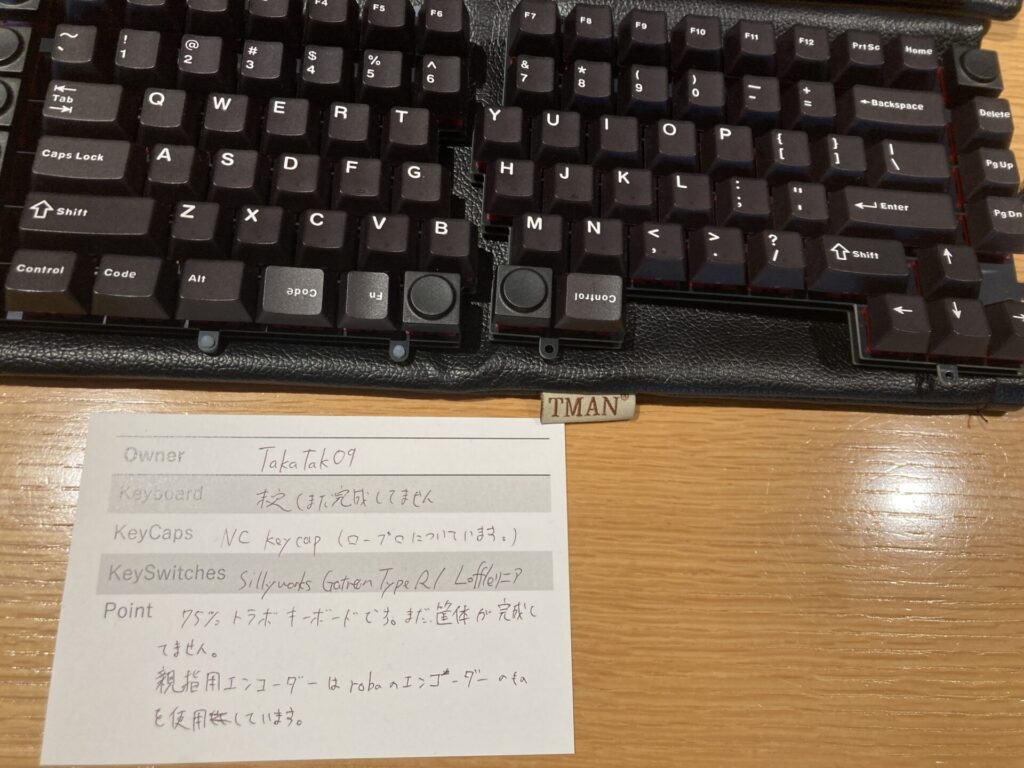 F4 F5 F6 F7 F8 F9 F10 F11 F12 PrtSc Home
~ ` ! 1 @ 2 # 3 $ 4 % 5 ^ 6 & 7 * 8 ( 9 ) 0 — - + = ←Backspace Delete
Tab Q W E R T Y U I O P { [ } ] | \ PgUp
Caps Lock A S D F G H J K L : ; " ' Enter PgDn
Shift Z X C V B M N < , > . ? / Shift ↑
Control Code Alt Code Fn Control ← ↓ →
TMAN®
Owner TakaTak09
Keyboard まだ完成してません
KeyCaps NC keycap (ロープロについています。)
KeySwitches Sillyworks Gateron Type R/
Point 75%トラボキーボードです。まだ筐体が完成し
てません。
親指用エンコーダーはrobaのエンコーダーのを
を使用しています。